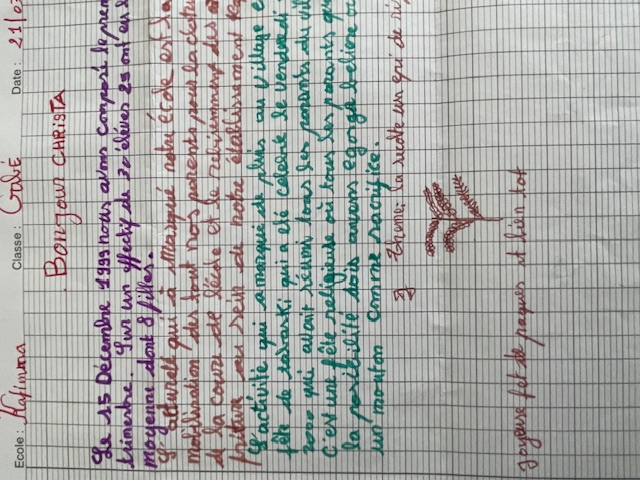 Ecole : Kafimma Classe : Godié Date : 21/03
BONJOUR CHRISTA
Le 15 Décembre 1999 nous avons composé le prem
trimestre. Sur un effectif de 30 élèves 29 ont eu l
moyenne dont 8 filles.
qui à marqué notre école est la
mobilisation des tout nos parents pour la clotu
de la cour de l'école et le
toiture au sein de notre établissement
L'activité qui a marqué de plus au village e
fête de tabaski qui a été célébrée le vendredi
2000 qui avait réuni tous les parents du vil
C'est une fête religieuse où tous les parents qu
la possibilité égorgé bélier ou
un mouton comme sacrifice.
Thème: la récolte un qui de ri
Joyeuse fêt de paques et bien tot